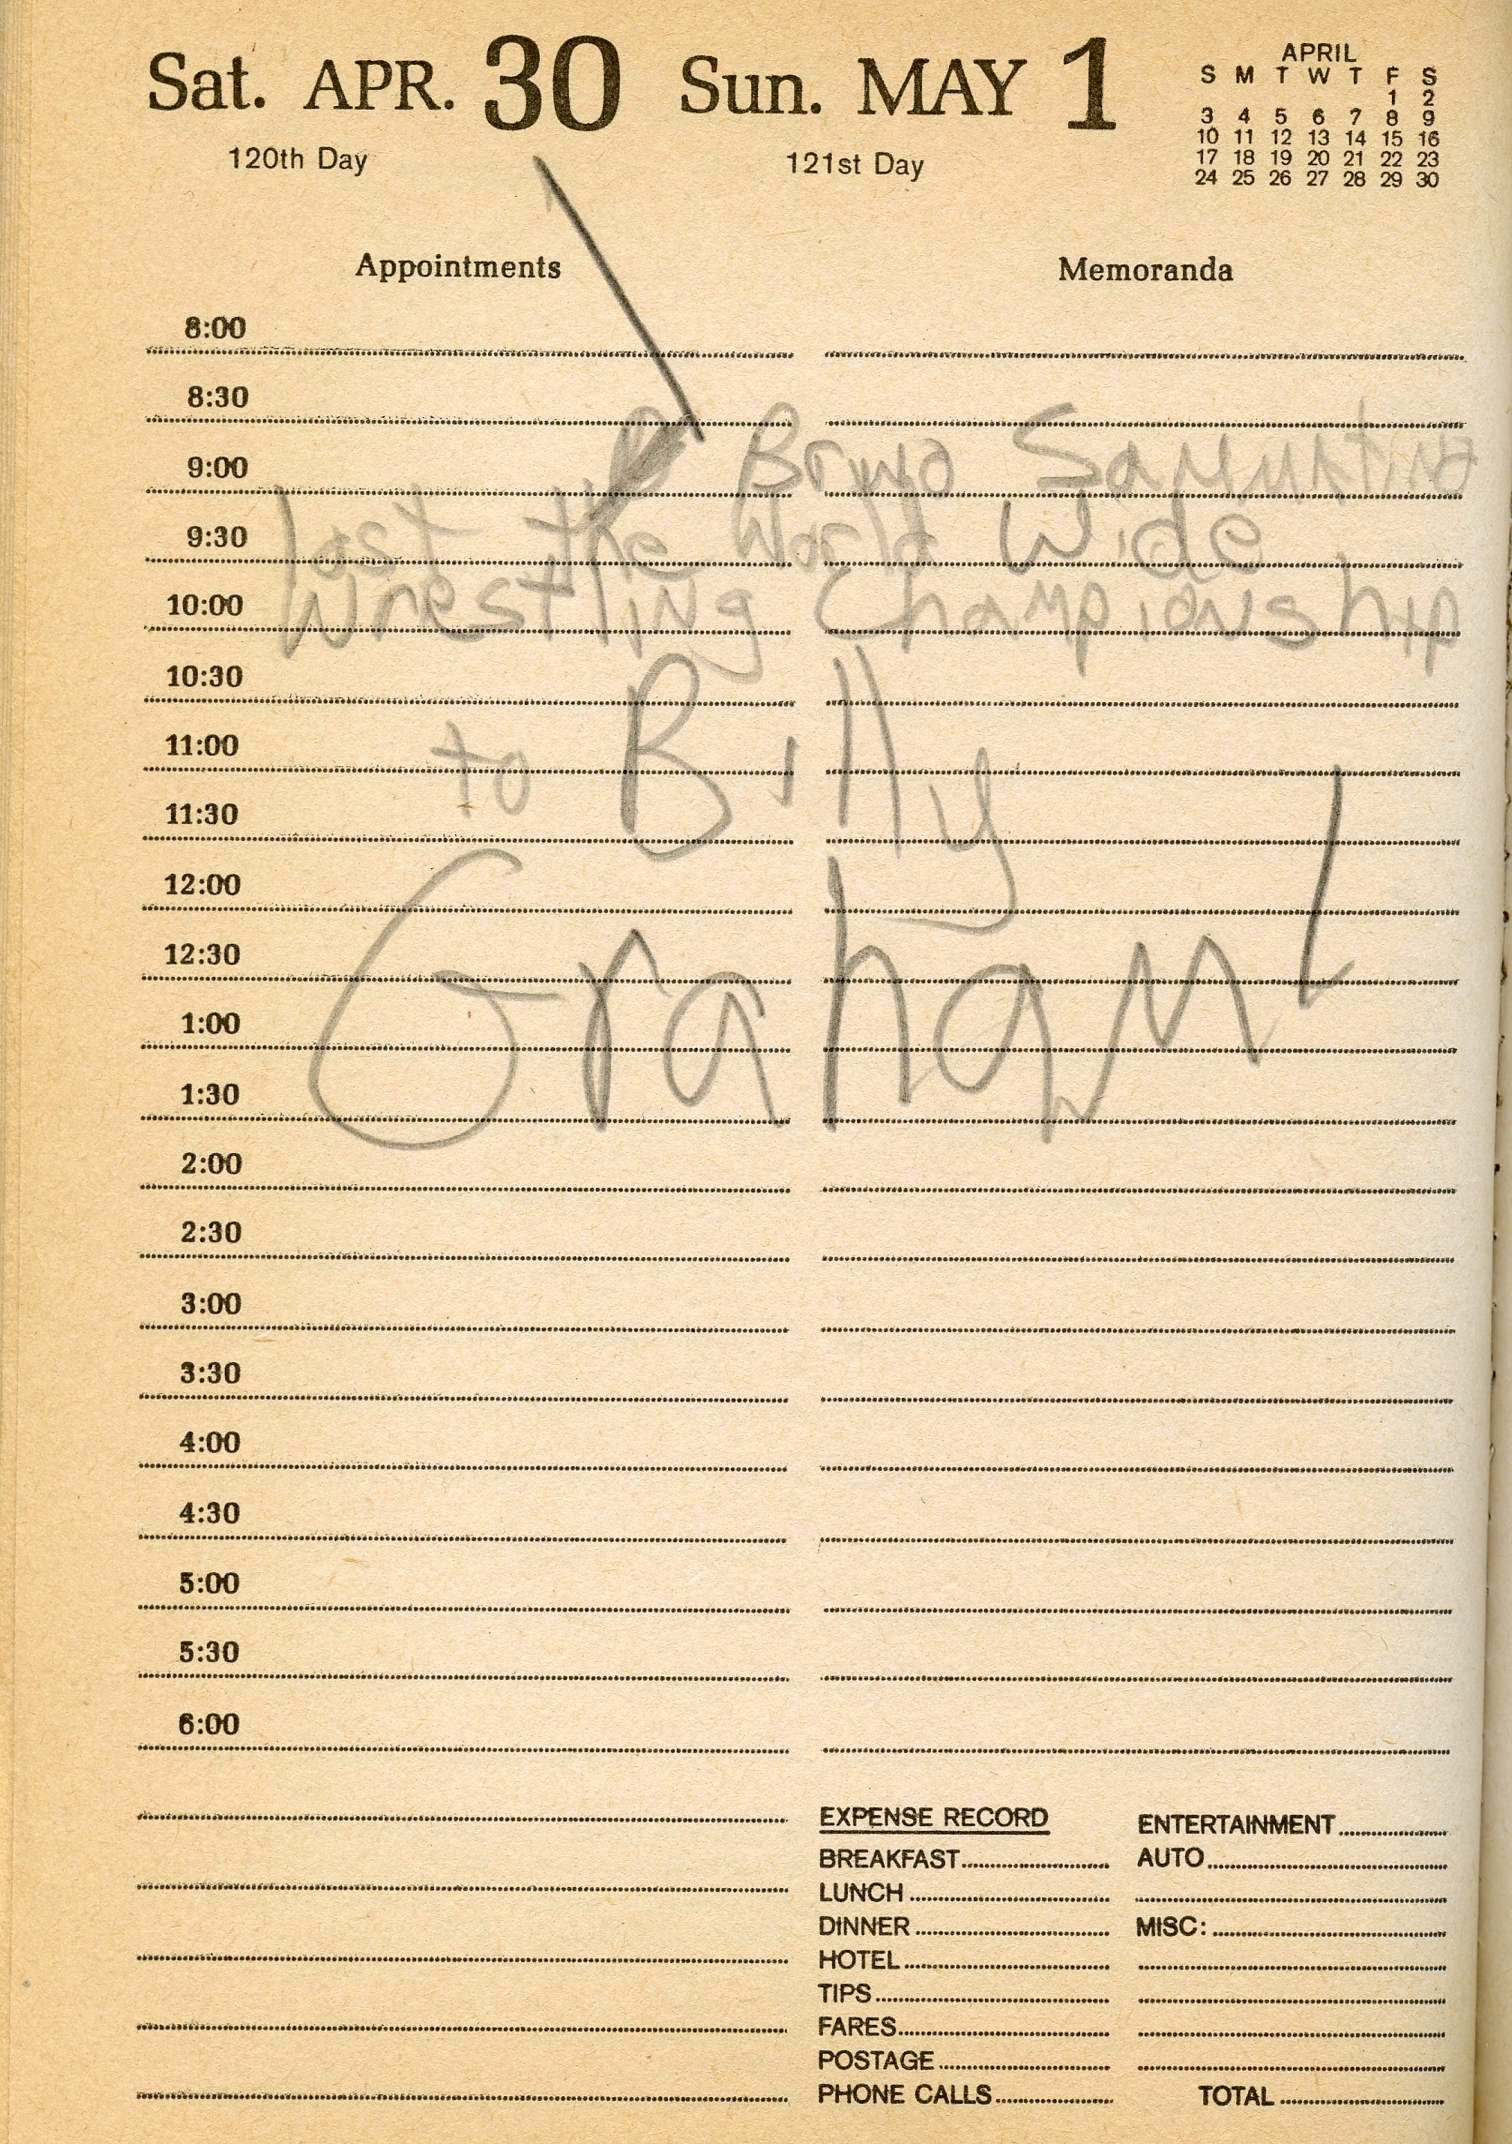 Sat. APR. 30 Sun. MAY 1
120th Day 121st Day
APRIL
S M T W T F S
1 2
3 4 5 6 7 8 9
10 11 12 13 14 15 16
17 18 19 20 21 22 23
24 25 26 27 28 29 30
Appointments Memoranda
8:00
8:30
9:00 Bruno
9:30 lost the World Wide
10:00 Wrestling Championship
10:30
11:00 to Billy
11:30
12:00
12:30 Graham!
1:00
1:30
2:00
2:30
3:00
3:30
4:00
4:30
5:00
5:30
6:00
EXPENSE RECORD
BREAKFAST
LUNCH
DINNER
HOTEL
TIPS
FARES
POSTAGE
PHONE CALLS
ENTERTAINMENT
AUTO
MISC:
TOTAL